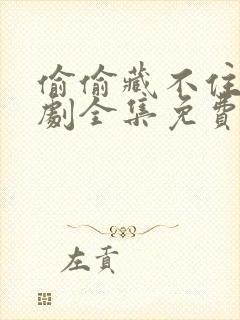 偷偷藏不住
劇全集免費
左貢